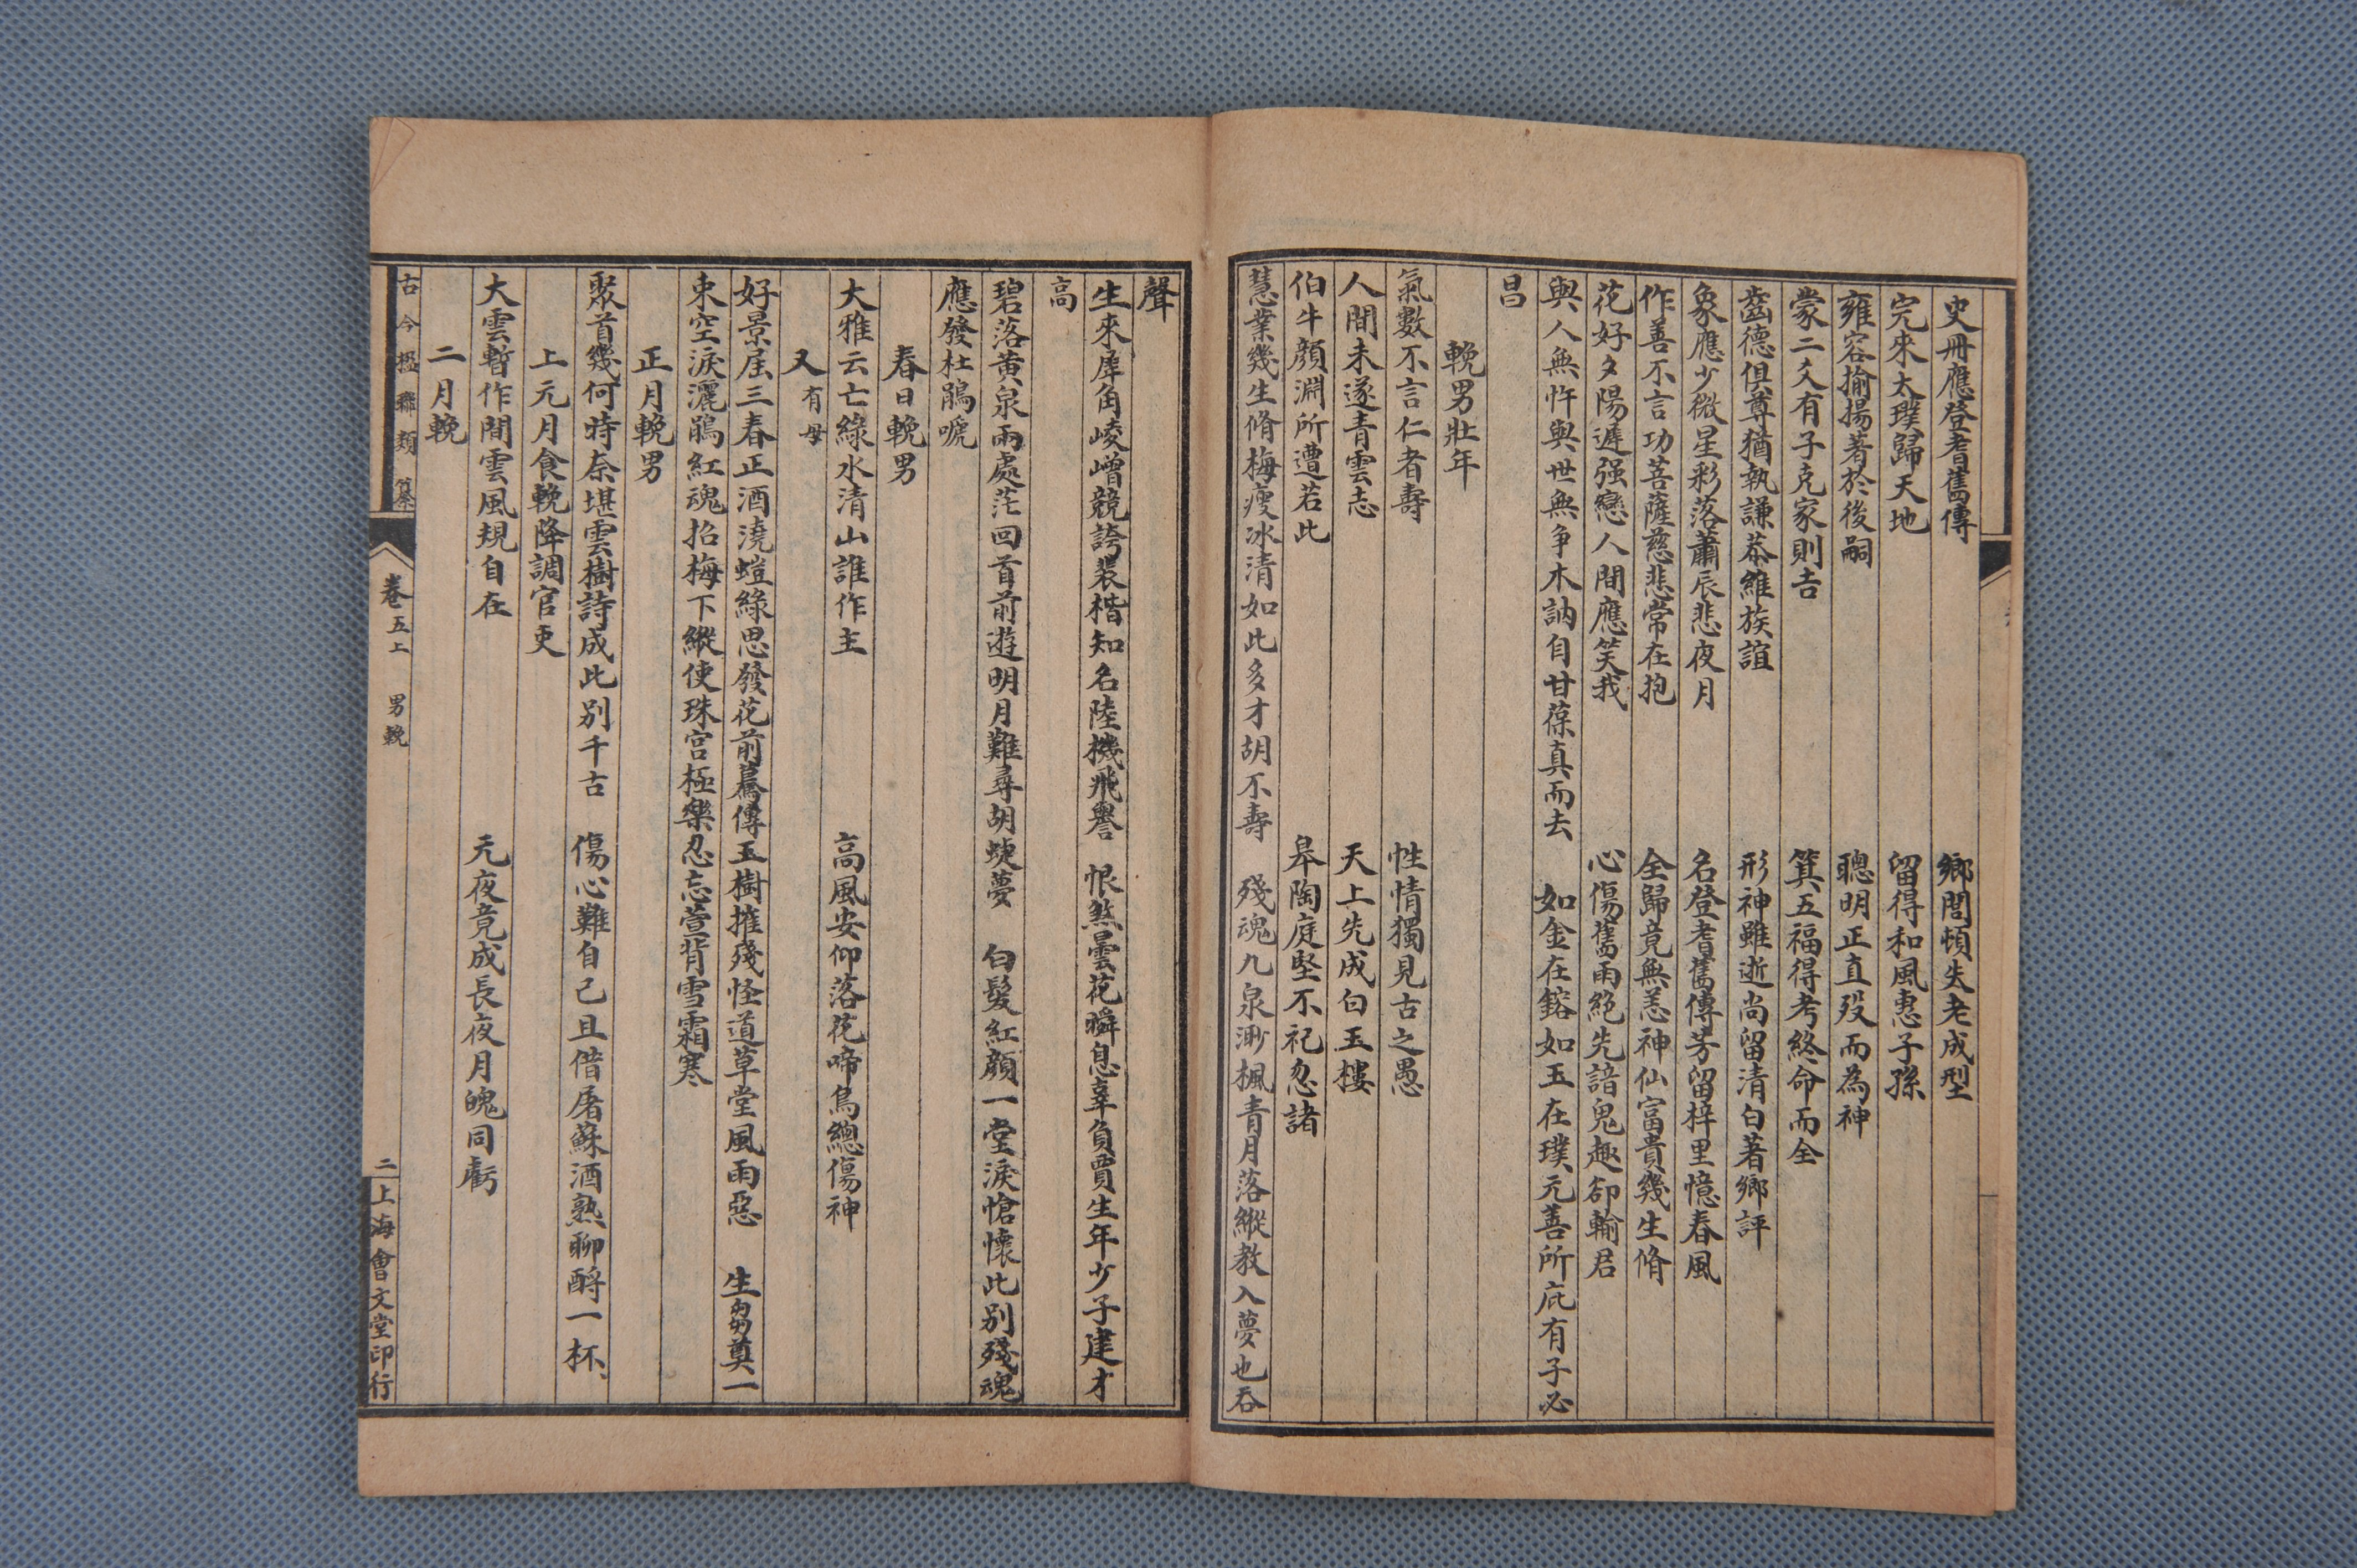 史冊應登耆舊傳　鄉閭頓失老成型
完來太璞歸天地　留得和風惠子孫
雍容揄揚著於後嗣　聰明正直歿而為神
蒙二爻有子克家則吉　箕五福得考終命而全
齒德俱尊猶執謙恭維族誼　形神雖逝尚留清白著鄉評
象應少微星彩落蕭辰悲夜月　名登耆舊傳芳留梓里憶春風
作善不言功菩薩慈悲常在抱　全歸竟無恙神仙富貴幾生脩
花好夕陽遲强戀人間應笑我　心傷舊雨絕先諳鬼趣卻輸君
與人無忤與世無爭木訥自甘葆真而去　如金在鎔如玉在璞元善所庇有子必
昌
輓男壯年
氣數不言仁者壽　性情獨見古之愚
人間未遂青雲志　天上先成白玉樓
伯牛顏淵所遭若此　皋陶庭堅不祀忽諸
慧業幾生脩梅瘦冰清如此多才胡不壽　殘魂九泉渺楓青月落縱教入夢也吞
聲
生來犀角崚嶒競誇裴楷知名陸機飛譽　恨煞曇花瞬息辜負賈生年少子建才
高
碧落黃泉兩處茫回首前遊明月難尋胡蜨夢　白髮紅顏一堂淚愴懷此別殘魂
應發杜鵑嗁
春日輓男
大雅云亡綠水清山誰作主　高風安仰落花啼鳥總傷神
又有母
好景屆三春正酒澆螘綠思發花前驀傳玉樹摧殘怪道草堂風雨惡　生芻奠一
束空淚灑鵑紅魂招梅下縱使珠宮極樂忍忘萱背雪霜寒
正月輓男
聚首幾何時奈堪雲樹詩成此別千古　傷心難自己且借屠蘇酒熟聊酹一杯
上元月食輓降調官吏
大雲暫作閒雲風規自在　元夜竟成長夜月魄同虧
二月輓
古今楹聯類纂
卷五上　男輓
二
上海會文堂印行